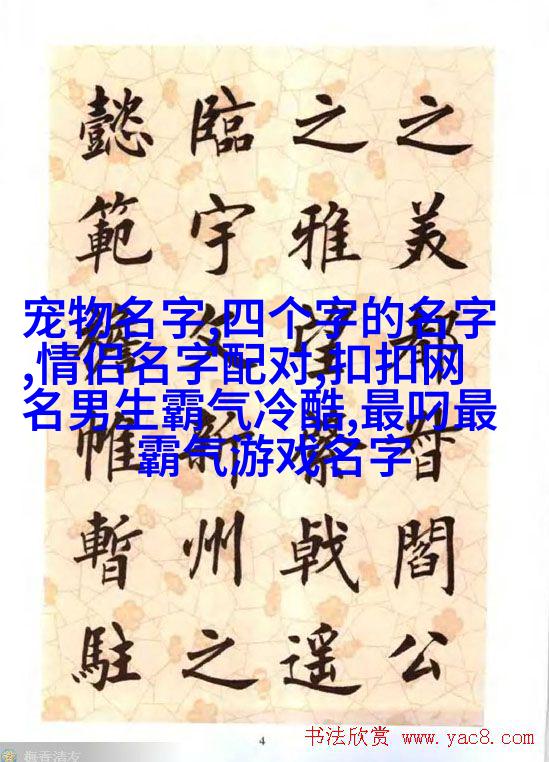 之美都督閻公
之雅望棨戟遥
臨宇文新州之
懿範襜帷暫駐
宠物名字,四个字的名字
,情侣名字配对,扣扣网
名男生霸气冷酷,最叼最
霸气游戏名字
4
书法欣赏 www.yac8.com